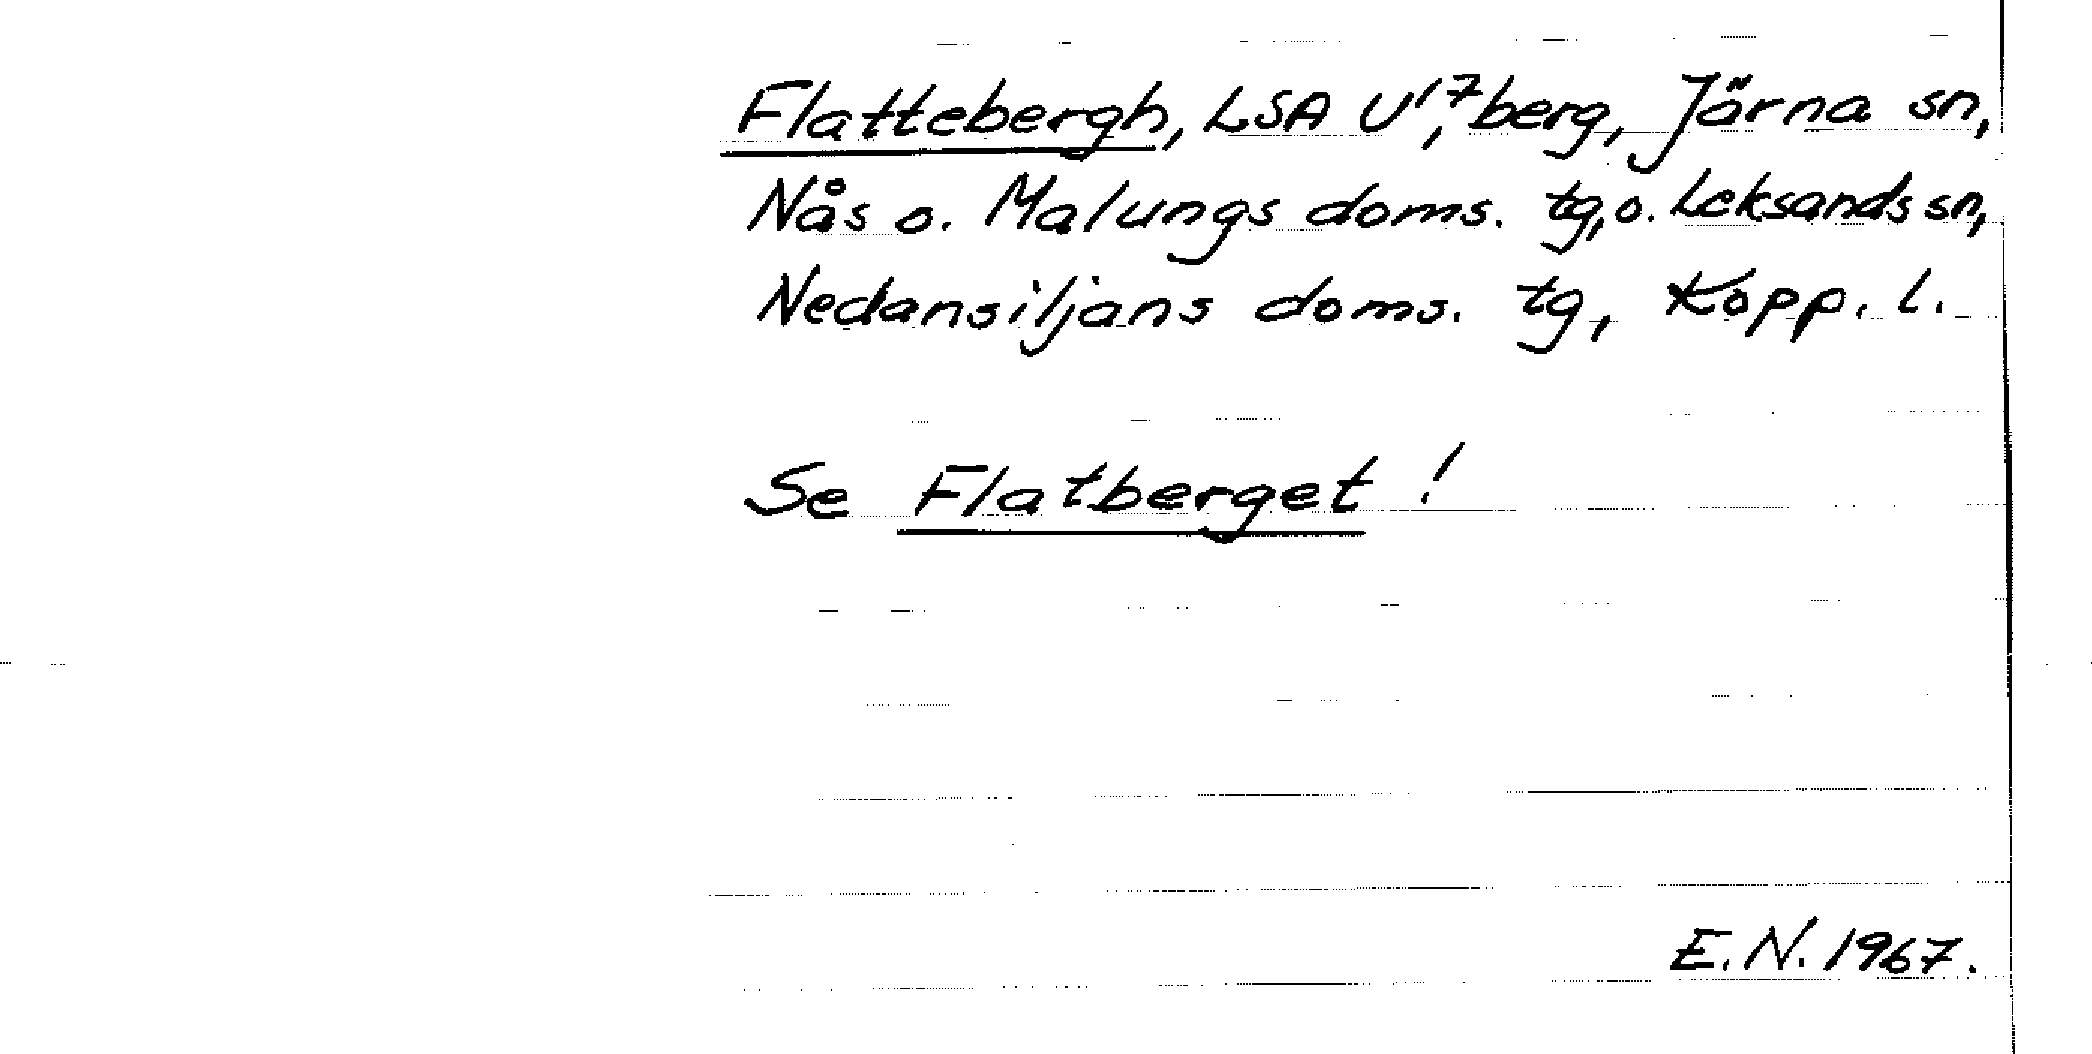 Flattebergh, LSA U¹,⁷ berg, Järna sn,
Nås o. Malungs doms. tg, o. Leksands sn,
Nedansiljans doms. tg, Kopp. l.
Se Flatberget!
E. N. 1967.